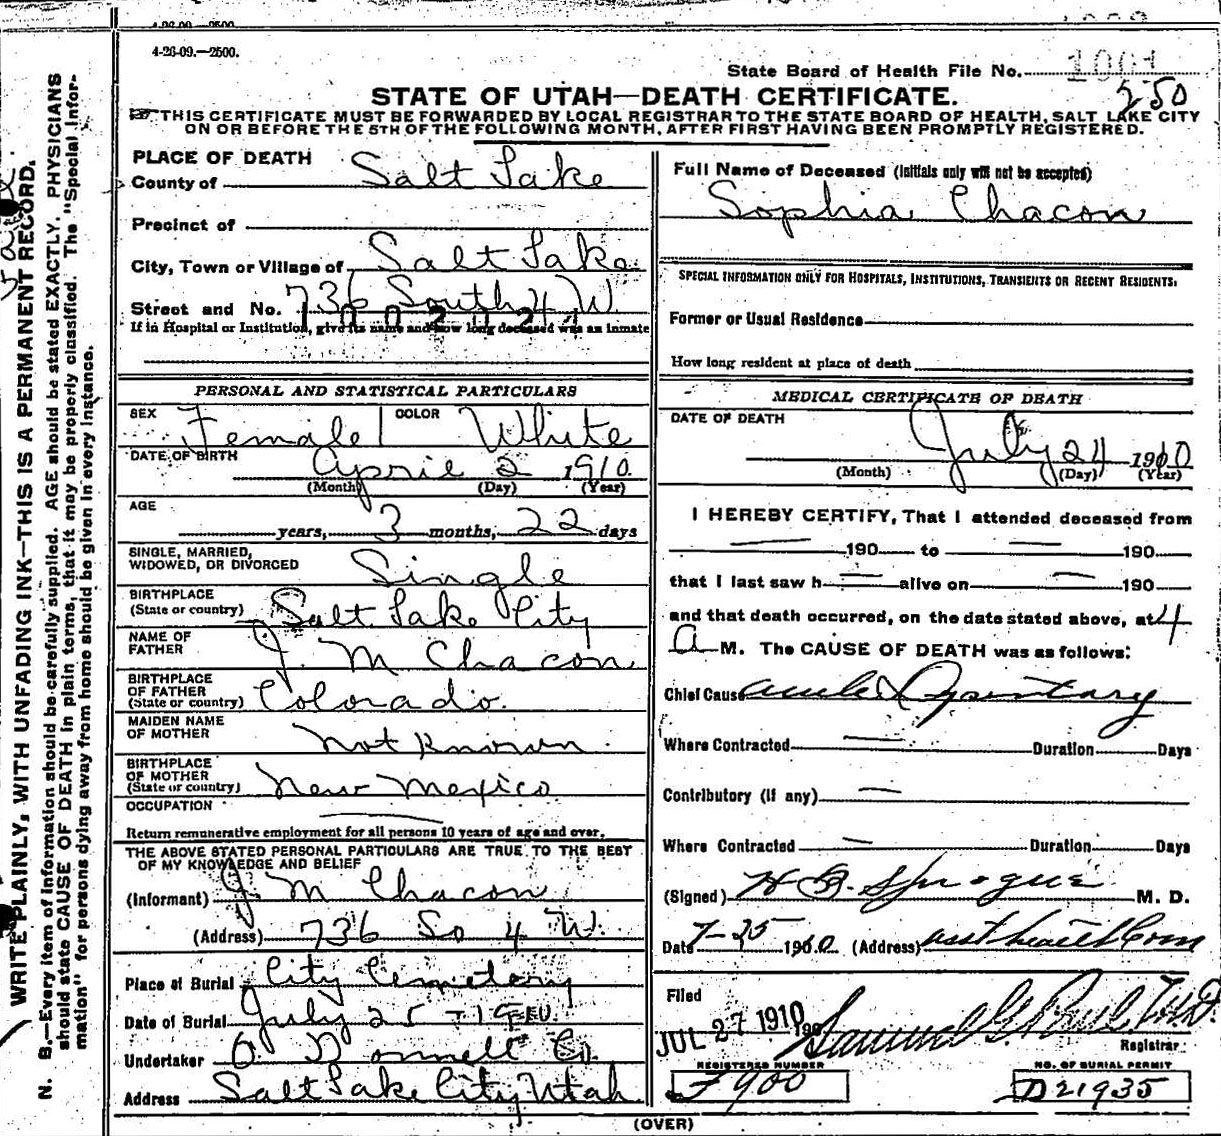 4-26-09.—2500.
State Board of Health File No. 1001
250
STATE OF UTAH—DEATH CERTIFICATE.
THIS CERTIFICATE MUST BE FORWARDED BY LOCAL REGISTRAR TO THE STATE BOARD OF HEALTH, SALT LAKE CITY
ON OR BEFORE THE 5TH OF THE FOLLOWING MONTH, AFTER FIRST HAVING BEEN PROMPTLY REGISTERED.
WRITE PLAINLY, WITH UNFADING INK—THIS IS A PERMANENT RECORD.
N. B.—Every item of information should be carefully supplied. AGE should be stated EXACTLY. PHYSICIANS
should state CAUSE OF DEATH in plain terms, that it may be properly classified. The "Special Infor-
mation" for persons dying away from home should be given in every instance.
PLACE OF DEATH
County of Salt Lake
Precinct of
City, Town or Village of Salt Lake
Street and No. 736 South 4 W
If in Hospital or Institution, give its name and how long deceased was an inmate
PERSONAL AND STATISTICAL PARTICULARS
SEX Female COLOR White
DATE OF BIRTH April 2 1910
(Month) (Day) (Year)
AGE
years, 3 months, 22 days
SINGLE, MARRIED,
WIDOWED, OR DIVORCED Single
BIRTHPLACE
(State or country) Salt Lake City
NAME OF
FATHER J. M Chacon
BIRTHPLACE
OF FATHER
(State or country) Colorado.
MAIDEN NAME
OF MOTHER not Known.
BIRTHPLACE
OF MOTHER
(State or country) New Mexico
OCCUPATION
Return remunerative employment for all persons 10 years of age and over.
THE ABOVE STATED PERSONAL PARTICULARS ARE TRUE TO THE BEST
OF MY KNOWLEDGE AND BELIEF
(Informant) J. M Chacon
(Address) 736 So 4 W.
Place of Burial City Cemetery
Date of Burial July 25 - 1910.
Undertaker O. Donnell Co.
Address Salt Lake City, Utah
Full Name of Deceased (Initials only will not be accepted)
Sophia Chacon
SPECIAL INFORMATION ONLY FOR HOSPITALS, INSTITUTIONS, TRANSIENTS OR RECENT RESIDENTS:
Former or Usual Residence
How long resident at place of death
MEDICAL CERTIFICATE OF DEATH
DATE OF DEATH
July 24 1910
(Month) (Day) (Year)
I HEREBY CERTIFY, That I attended deceased from
— 190 to — 190
that I last saw h — alive on — 190
and that death occurred, on the date stated above, at 4
A M. The CAUSE OF DEATH was as follows:
Chief Cause
Where Contracted — Duration Days
Contributory (if any) —
Where Contracted — Duration Days
(Signed) H B. Sprague M. D.
Date 7-25 1910 (Address) asst health Com
Filed
JUL 27 1910 190 Samuel G. Paul
Registrar
REGISTERED NUMBER
F 900
NO. OF BURIAL PERMIT
D 21935
(OVER)